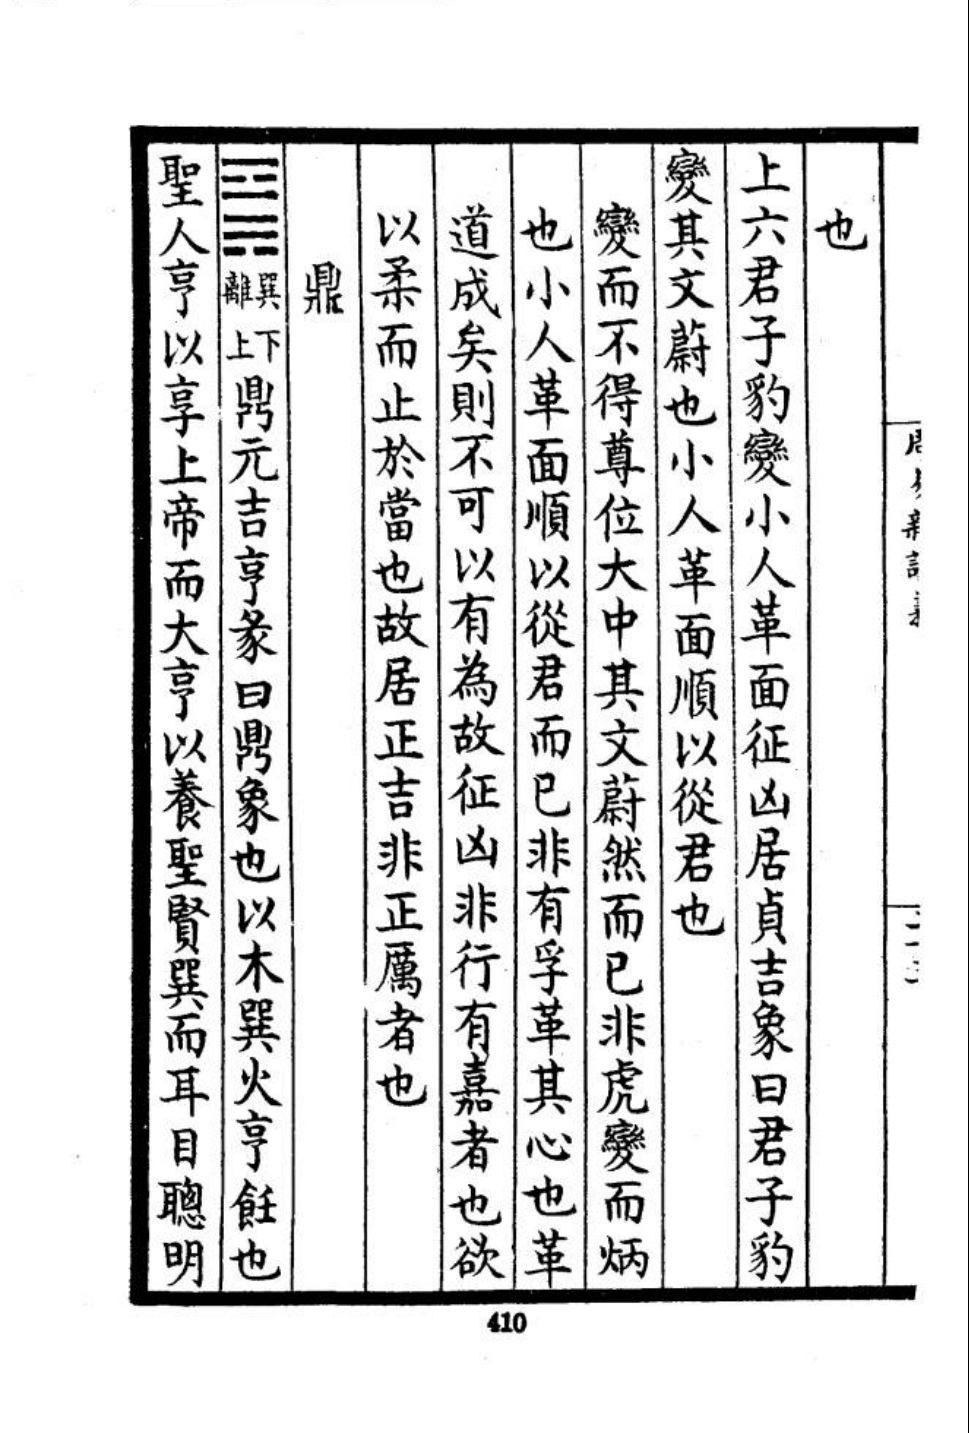 也
上六君子豹變小人革面征凶居貞吉象曰君子豹
變其文蔚也小人革面順以從君也
變而不得尊位大中其文蔚然而已非虎變而炳
也小人革面順以從君而已非有孚革其心也革
道成矣則不可以有為故征凶非行有嘉者也欲
以柔而止於當也故居正吉非正厲者也
鼎
巽下
離上
鼎元吉亨彖曰鼎象也以木巽火亨飪也
聖人亨以享上帝而大亨以養聖賢巽而耳目聰明
410